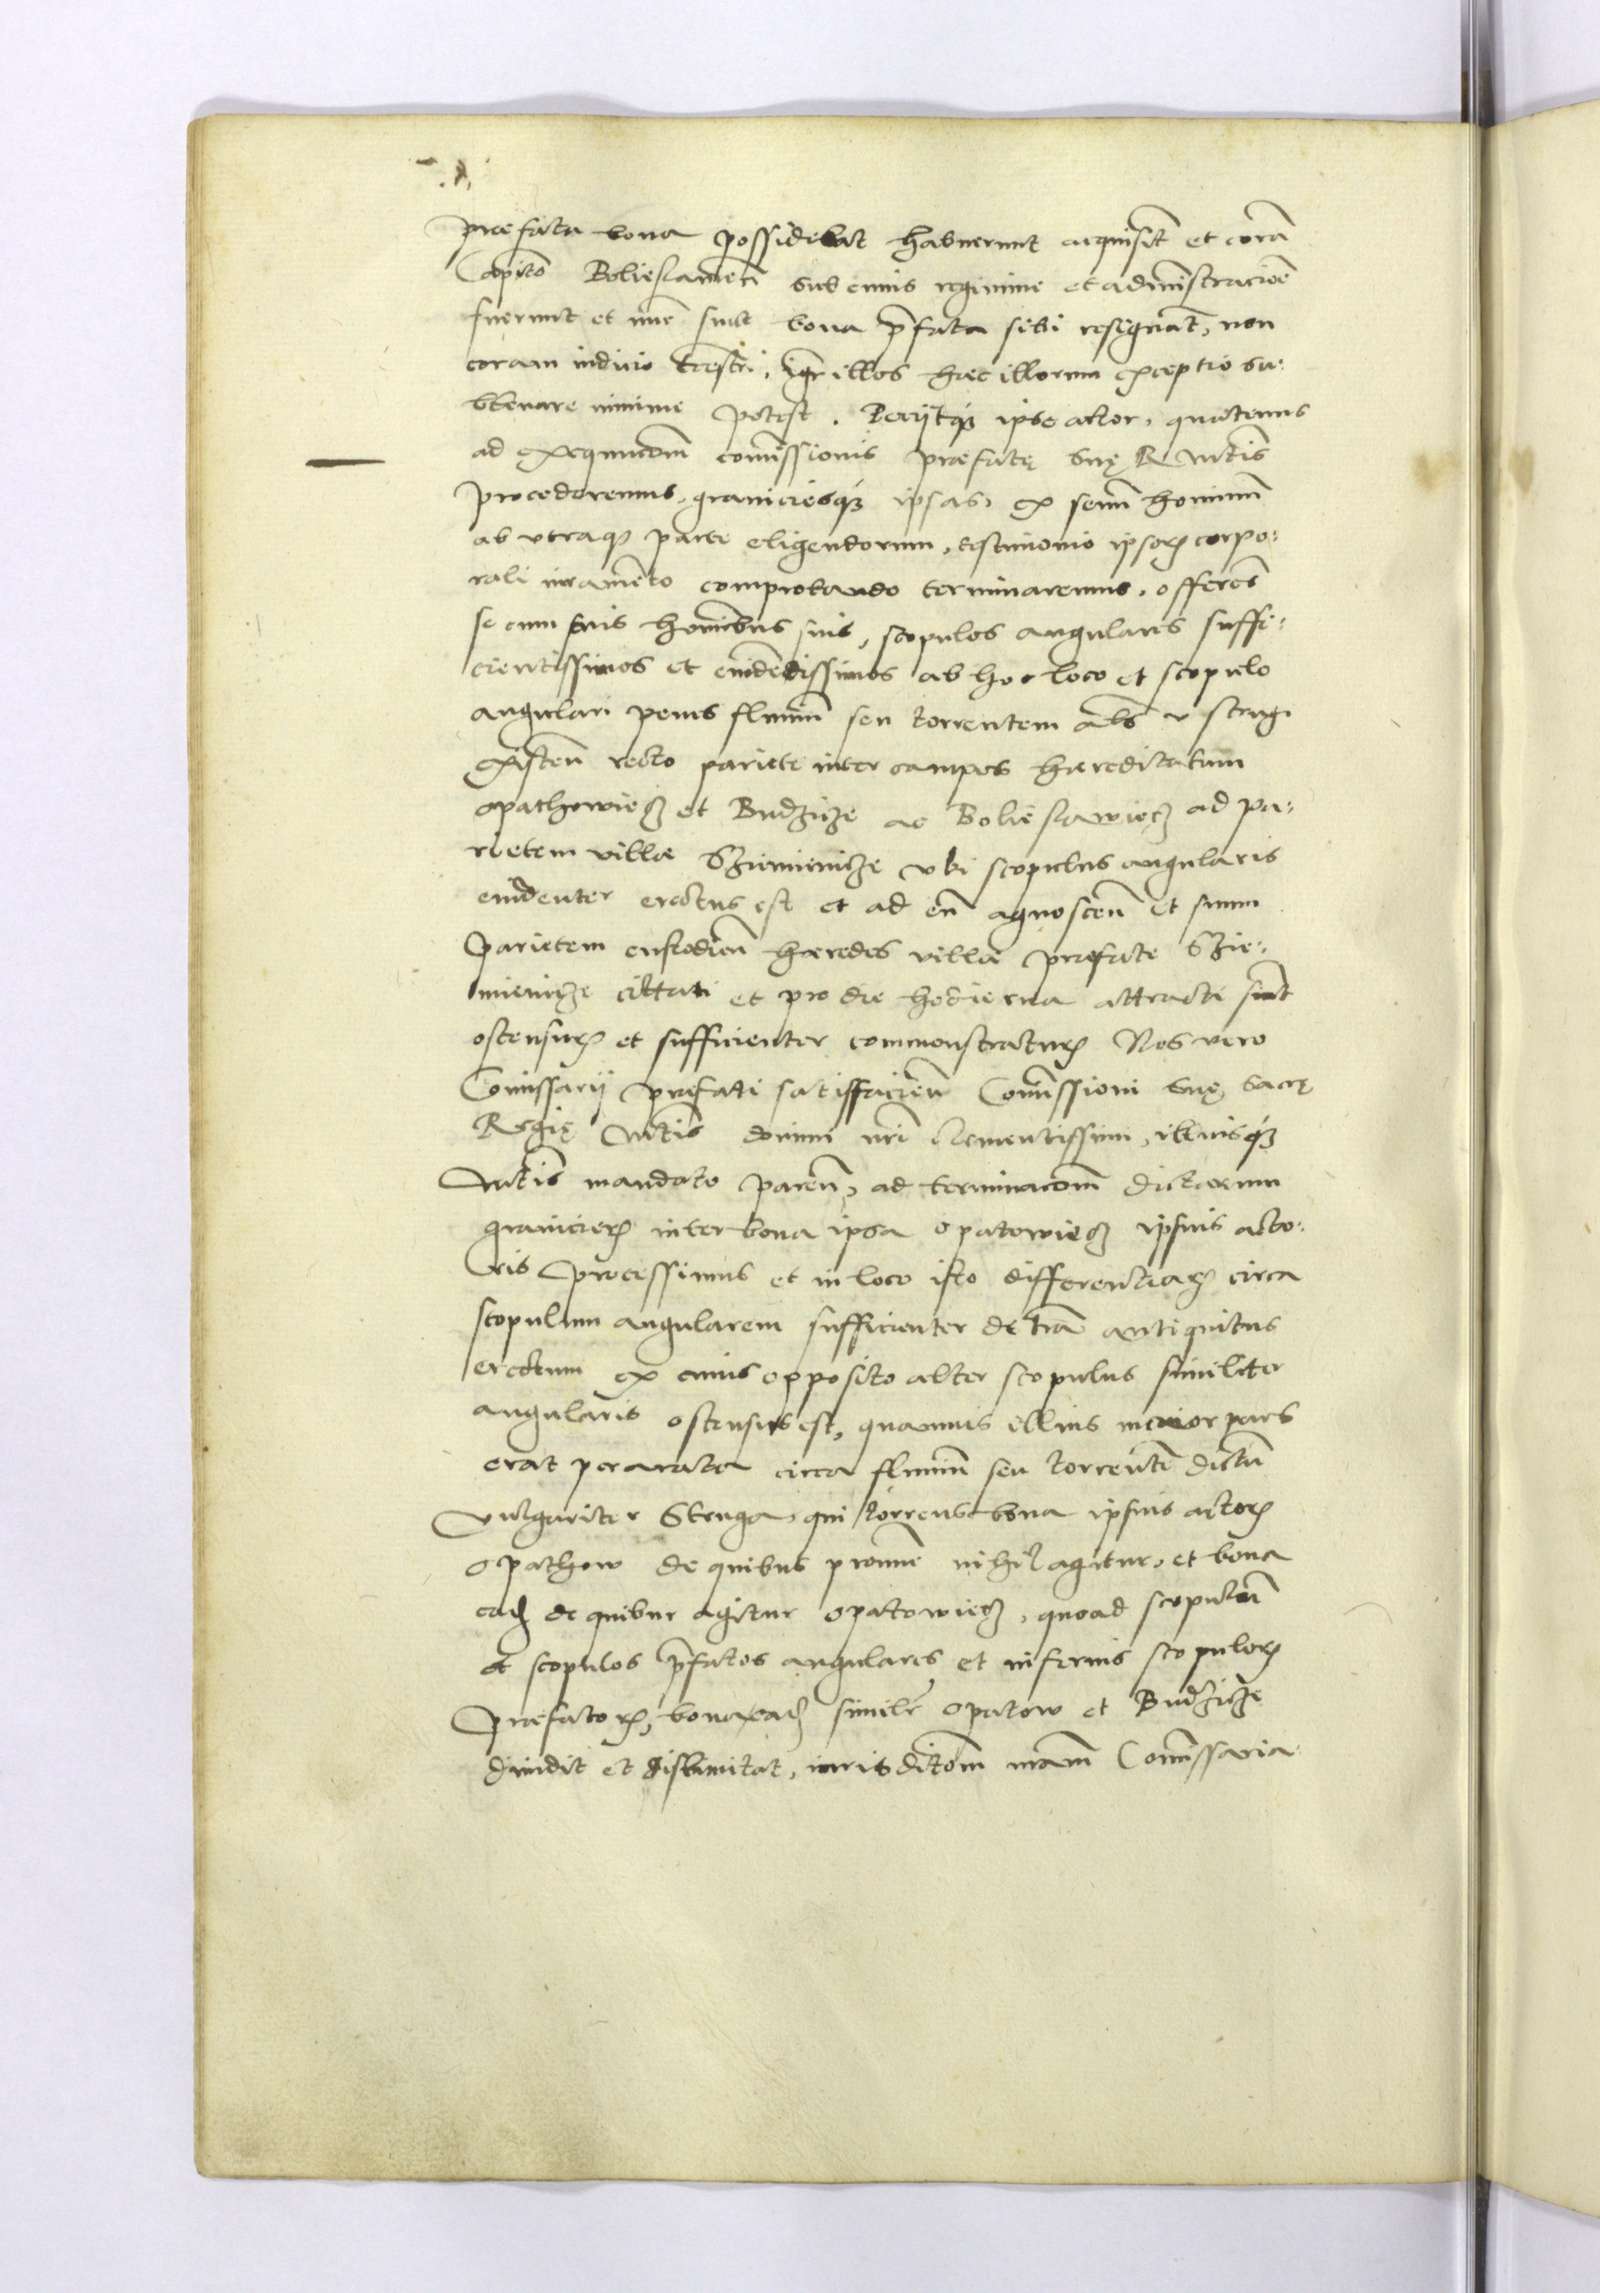 praefata bona possidebat habuerunt acquisit̄ et corā
Capitō Bolieslawieñ sub cuius regimine et administracioē
fuerunt et nūc sunt bona p̄fata sibi resignāt, non
coram iudicio terrestri, igr̄ illos haec illorum exceptio su:
bleuare minime potest. Petijtq́ȝ ipse actor, quatenus
ad exequucōm̄ comissionis praefatę suę R Mtis̄
procederemus, graniciesq́ȝ ipsas, ex senū hominum̄
ab vtraqȝ parte eligendorum, testimonio ipsorꝝ corpo:
rali iuramēto comprobando terminaremus, offereñs
se cum suis hominibus suis, scopulos angulares suffi:
cientissimos et euidētissimos ab hoc loco et scopulo
angulari penes flumiñ seu torrentem al̄s v strugi
existeñ recto pariete inter campos haereditatum
Opathowiecȝ et Budzicze ac Bolieslawiecȝ ad pa:
rietem villae Sziemienicze vbi scopulus angularis
euidenter erectus est et ad eū agnosceñ et suum
parietem custodieñ haeredes villae praefate Szie:
mienicze citati et pro die hodierna attracti sunt
ostensurꝝ et sufficienter commonstraturꝝ Nos vero
Comissarij praefati satisfacieñ Comissioni suę sacrę
Regię Mtis̄ domini nr̄i clementissimi, illiusq́ȝ
Mtis̄ mandato pareñ, ad terminacōm̄ dictarum
granicierꝝ inter bona ipsa Opatowiecȝ ipsius acto:
ris processimus et in loco isto differentiarꝝ circa
scopulum angularem sufficienter de t̄ra antiquitus
erectum ex cuius opposito alter scopulus similiter
angularis ostensus est, quamuis illius maior pars
erat perarata circa flumiñ seu torrentē dictū
vulgariter Struga, qui torrens bona ipsius actorꝝ
Opathow de quibus pronunc nihil agitur, et bona
eadȝ de quibus agitur Opatowiecȝ, quoad scopulum̄
et scopulos p̄fatos angulares et inferius scopulorꝝ
praefatorꝝ, bona eadȝ similr̄ Opatow et Budzicze
diuidit et dislimitat, iurisdictōm̄ nr̄am Comissaria